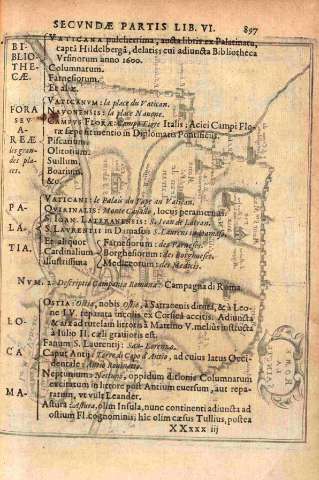 SECVNDÆ PARTIS LIB. VI. 897
BI-
BLIO-
THE-
CÆ.
VATICANA pulcherrima, aucta libris ex Palatinatu,
capti Hildelbergâ, delatis: cui adiuncta Bibliotheca
Vrsinorum anno 1600.
Columnarum.
Farnesiorum.
Et aliæ.
FORA
SEV
AREÆ
les grandes
places.
VATICANVM: la place du Vatican.
NAVONENSIS: la place Nauone.
CAMPVS FLORÆ: Campo Fiore Italis; Aciei Campi Floræ
sepè fit mentio in Diplomatis Pontificiis.
Piscarium.
Olitorium.
Suillum.
Boarium.
&c.
PA-
LA-
TIA.
VATICANI: le Palais du Pape au Vatican.
QVIRINALIS: Monte Cauallo, locus peramœnus.
S. IOAN. LATERANENSIS: S. Iean de Latran.
S. LAVRENTII in Damaso: S. Laurens in Damaso.
Et aliquot
Cardinalium
illustrissima
Farnesiorum: des Farneses.
Borghesiorum: des Borgheses.
Medicæorum: des Medicis.
NVM. 2. Descriptio Campaniæ Romanæ: Campagna di Roma.
LO-
CA
MA-
OSTIA: Ostia, nobis Ostie, à Sarracenis diruta, & à Leone
IV. reparata incolis ex Corsica accitis. Adiuncta
& arx ad tutelam littoris à Martino V. meliùs instructa
à Iulio II. cœli grauioris est.
Fanum S. Laurentij: San-Lorenzo.
Caput Antij: Terre di Capo d'Antio, ad cuius latus Occidentale:
Antio Rouinato.
Neptunium: Nettuno, oppidum ditionis Columnatum
excitatum in littore post Antium euersum, aut reparatum,
vt vult Leander.
Astura: Astura, olim Insula, nunc continenti adiuncta ad
ostium Fl. cognominis; hîc olim cæsus Tullius, postea
XXxxx iij